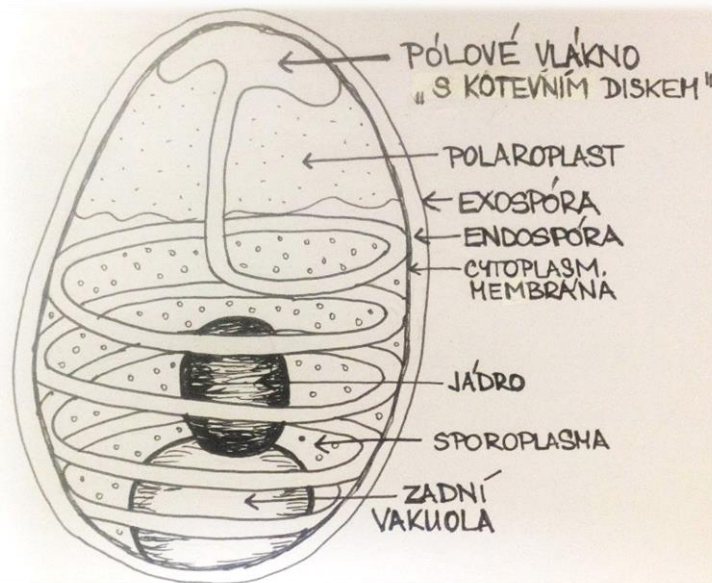 PÓLOVÉ VLÁKNO
„S KOTEVNÍM DISKEM"
POLAROPLAST
EXOSPÓRA
ENDOSPÓRA
CYTOPLASM.
MEMBRÁNA
JÁDRO
SPOROPLASMA
ZADNÍ
VAKUOLA